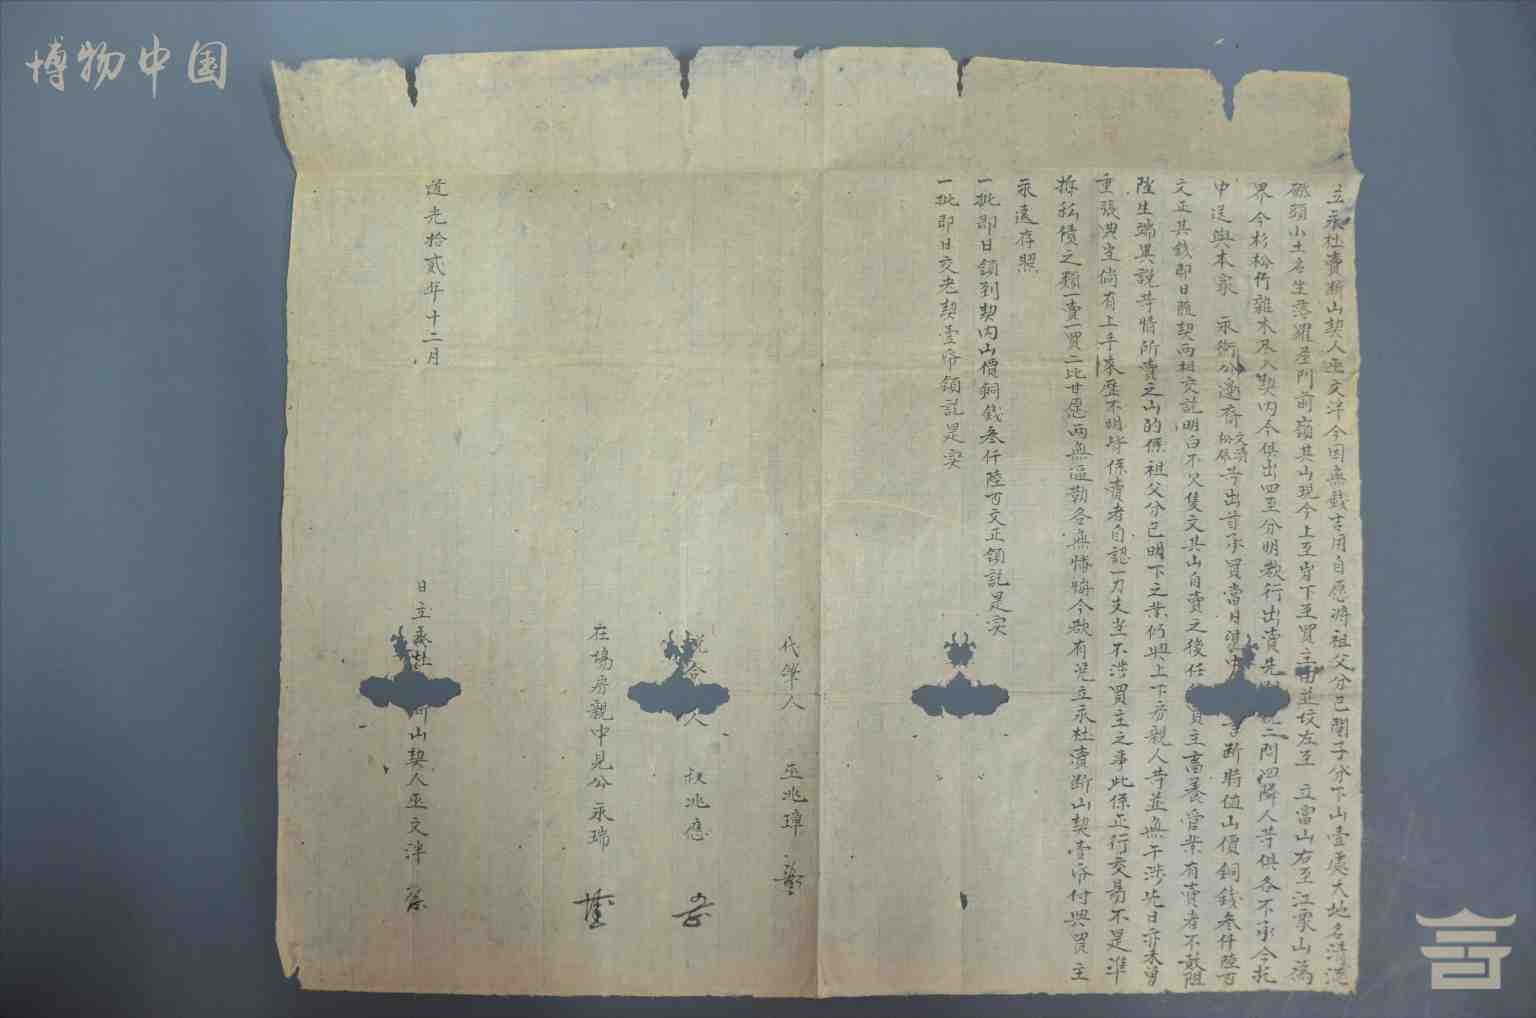 博物中国
立永杜賣斷山契人巫文泮今因無錢吉用自愿將祖父分已鬮子分下山壹處大地名清溪
磜頭小土名坐落羅屋門前嶺其山現今上至 下至買主田並坟左至 立富山右至江家山為
界今杉松竹雜木 入契内今俱出四至分明欲行出賣先 二問四隣人等俱各不承今托
中送與本家 永衛公邊齊 文清 松保 等出首承買當日 中 斷時值山價銅錢叁仟陸百
文正其錢即日隨契兩相交訖明白不欠隻文其山自賣之後任 買主畜養管業有賣者不敢阻
生端異説等情所賣之山的係祖父分已明下之業仍與上下房親人等並無干涉先日亦未曾
重張典當倘有上手來歷不明皆係賣者自認一力支當不涉買主之事此係正行交易不是准
拆私債之類一賣一買二比甘愿兩無逼勒各無悔今欲有憑立永杜賣斷山契壹帋付與買主
永遠存照
一批即日領到契内山價銅錢叁仟陸百文正領訖是实
一批即日交老契壹帋領訖是实
代筆人 巫兆璋
説合 人 叔兆應
在場房親中見公永瑞
道光拾貳年十二月
日立永杜 山契人巫文泮